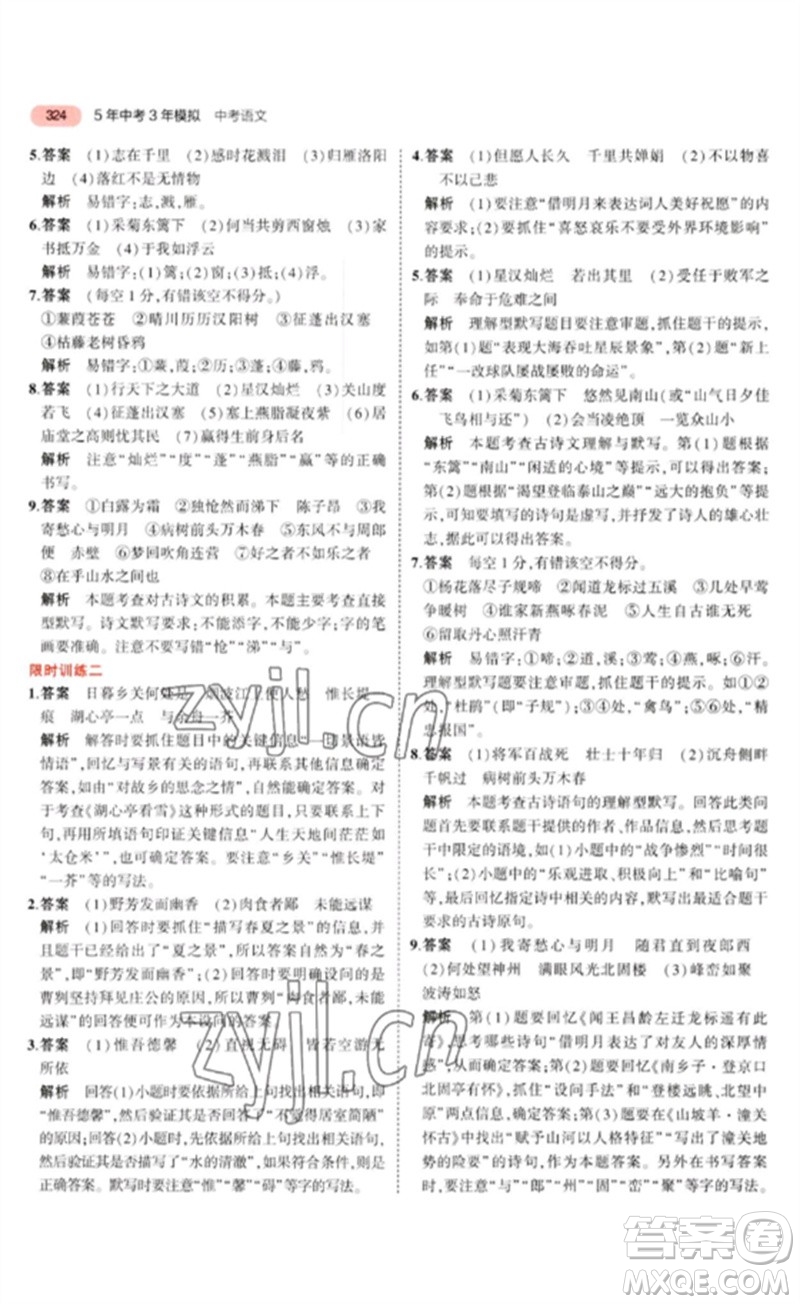 324 5年中考3年模拟 中考语文
5.答案 (1)志在千里 (2)感时花溅泪 (3)归雁洛阳
边 (4)落红不是无情物
解析 易错字:志,溅,雁。
6.答案 (1)采菊东篱下 (2)何当共剪西窗烛 (3)家
书抵万金 (4)于我如浮云
解析 易错字:(1)篱;(2)烛;(3)抵;(4)浮。
7.答案 (每空1分,有错该空不得分。)
①蒹葭苍苍 ②晴川历历汉阳树 ③征蓬出汉塞
④枯藤老树昏鸦
解析 易错字:①蒹,葭;③蓬;④藤,鸦。
8.答案 (1)行天下之大道 (2)星汉灿烂 (3)关山度
若飞 (4)征蓬出汉塞 (5)塞上燕脂凝夜紫 (6)居
庙堂之高则忧其民 (7)赢得生前身后名
解析 注意“灿烂”“度”“蓬”“燕脂”“赢”等的正确
书写。
9.答案 ①白露为霜 ②独怆然而涕下 陈子昂 ③我
寄愁心与明月 ④病树前头万木春 ⑤东风不与周郎
便 赤壁 ⑥梦回吹角连营 ⑦好之者不如乐之者
⑧在乎山水之间也
解析 本题考查对古诗文的积累。本题主要考查直接
型默写。诗文默写要求:不能添字,不能少字,字的笔
画要准确。注意不要写错“怆”“涕”“与”。
限时训练二
1.答案 日暮乡关何处是 烟波江上使人愁 惟长堤一
痕 湖心亭一点 与余舟一芥
解析 解答时要抓住题目中的关键信息——“写景语皆
情语”,回忆与写景有关的语句,再联系其他信息,如
“思念”“对故乡的思念之情”,就可以确定答案。对
于考查《湖心亭看雪》这种形式的题目,回忆原文后,
再用所填语句印证关键信息“人生天地间茫茫如
‘太仓米’”,即可确定答案。要注意“乡关”“惟长堤”
“一芥”等的写法。
2.答案 (1)野芳发而幽香 (2)肉食者鄙 未能远谋
解析 (1)回答时要抓住“描写春夏之景”的信息,并
且题干中已经给出了“夏之景”,所以答案应为“春之
景”,即“野芳发而幽香”;(2)回答时要明确设问的是
曹刿坚持拜见庄公的原因,所以“肉食者鄙,未能
远谋”可作为本设问的答案。
3.答案 (1)惟吾德馨 (2)直视无碍 皆若空游无
所依
解析 回答(1)小题时要依据所给上句找出相关下
句,即“惟吾德馨”,然后验证其是否回答了“不觉得居室简陋”
的原因;(2)小题时要依据所给上句找出相关语句,
然后验证其是否描写了“水的清澈”,如果符合条件,则是
正确答案。默写时要注意“惟”“馨”“碍”等字的写法。
4.答案 (1)但愿人长久 千里共婵娟 (2)不以物喜
不以己悲
解析 (1)要注意“借明月来表达词人美好祝愿”的
内容要求;(2)要抓住“喜怒哀乐不要受外界环境影响”
的提示。
5.答案 (1)星汉灿烂 若出其里 (2)受任于败军之
际 奉命于危难之间
解析 理解型默写题目要注意审题,抓住题干的提示,
如“表现大海吞吐星辰景象”,“新上
任”“一改球队屡战屡败的命运”。
6.答案 (1)采菊东篱下 悠然见南山(或山气日夕佳
飞鸟相与还) (2)会当凌绝顶 一览众山小
解析 本题考查古诗文理解与默写。第(1)题要根据
“东篱”“南山”“闲适的心境”等提示,得出答案;第
(2)题根据“渴望登临泰山之巅”“远大的抱负”等提
示,可知要填写的诗句是虚写,并抒发了诗人的雄心壮
志,据此可以得出答案。
7.答案 每空1分,有错该空不得分。
①杨花落尽子规啼 ②闻道龙标过五溪 ③几处早莺
争暖树 ④谁家新燕啄春泥 ⑤留取丹心照汗青
解析 易错字:①啼;②溪;③莺;④燕,啄;⑥汗。
理解型默写题要抓住题干中的关键信息,如①②
处,“杜鹃”(即“子规”);③④处,“禽鸟”;⑥处,“精
忠报国”。
8.答案 (1)将军百战死 壮士十年归 (2)沉舟侧畔
千帆过 病树前头万木春
解析 本题考查古诗语句的理解型默写。回答此类问
题首先要联系题干提供的作者、作品信息,然后思考题
干中限定的语境,如(1)中的“战争惨烈”“时间很
长”,(2)中的“乐观进取、积极向上”和“比喻句”,
最后回忆指定诗中相关的内容,确定出符合题干
要求的古诗原句。
9.答案 (1)我寄愁心与明月 随君直到夜郎西
(2)何处望神州 满眼风光北固楼 (3)峰峦如聚
波涛如怒
解析 第(1)题要回忆《闻王昌龄左迁龙标遥有此
寄》,思考哪些诗句“借明月表达了对友人的深厚情
感”;第(2)题要联系所学内容回忆《南乡子·登京口
北固亭有怀》,抓住“设问手法”和“登楼远眺,北望中
原”可得出答案;第(3)题要在《山坡羊·潼关
怀古》中找出“赋予山河以人格特征”“突出了潼关地
势的险要”的诗句,作为本题答案。另外在书写答案
时,要注意“与”“郎”“州”“固”“峦”等字的写法。
zyjl.cn
zyjl.cn
答案圈
MXQE.COM